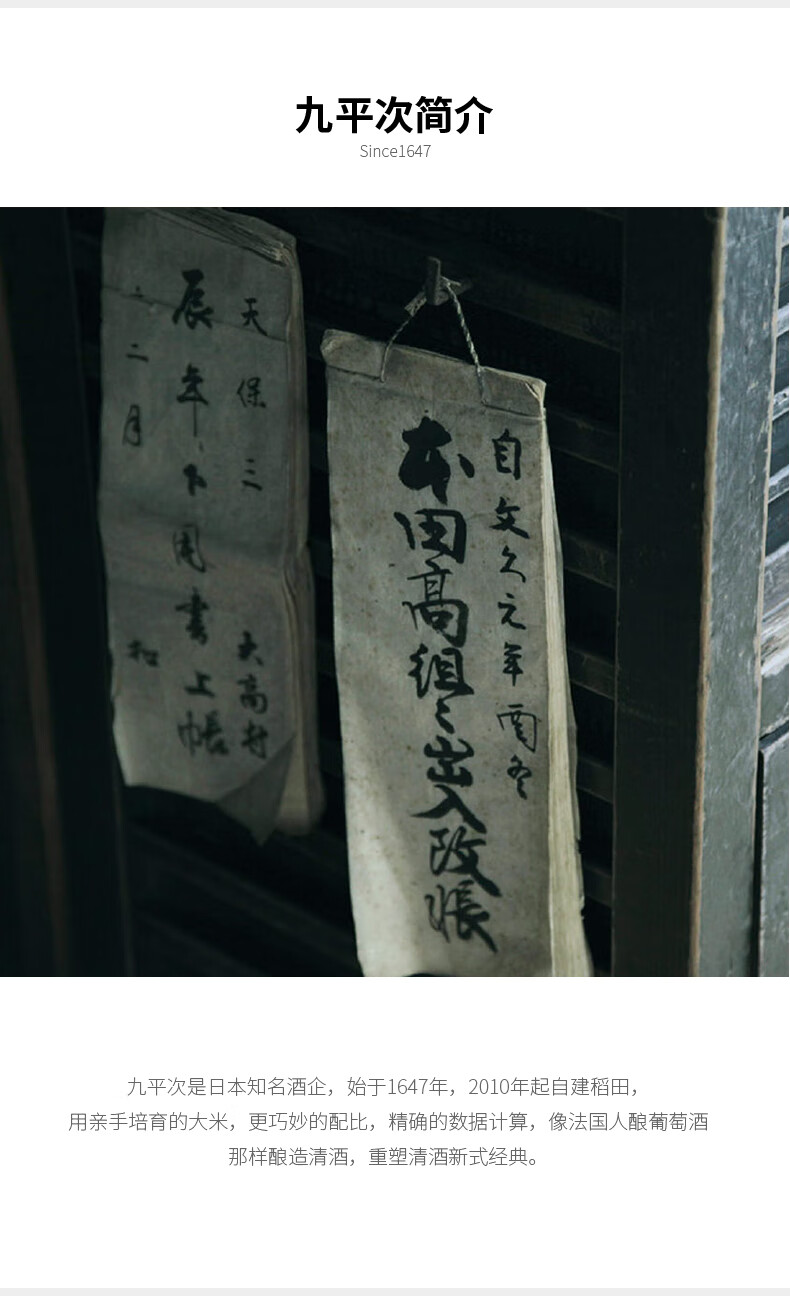 九平次简介
Since1647
天保三
大高村
辰年下用書上帳
二月
自文久元年
本田高組々出入改帳
九平次是日本知名酒企，始于1647年，2010年起自建稻田，
用亲手培育的大米，更巧妙的配比，精确的数据计算，像法国人酿葡萄酒
那样酿造清酒，重塑清酒新式经典。